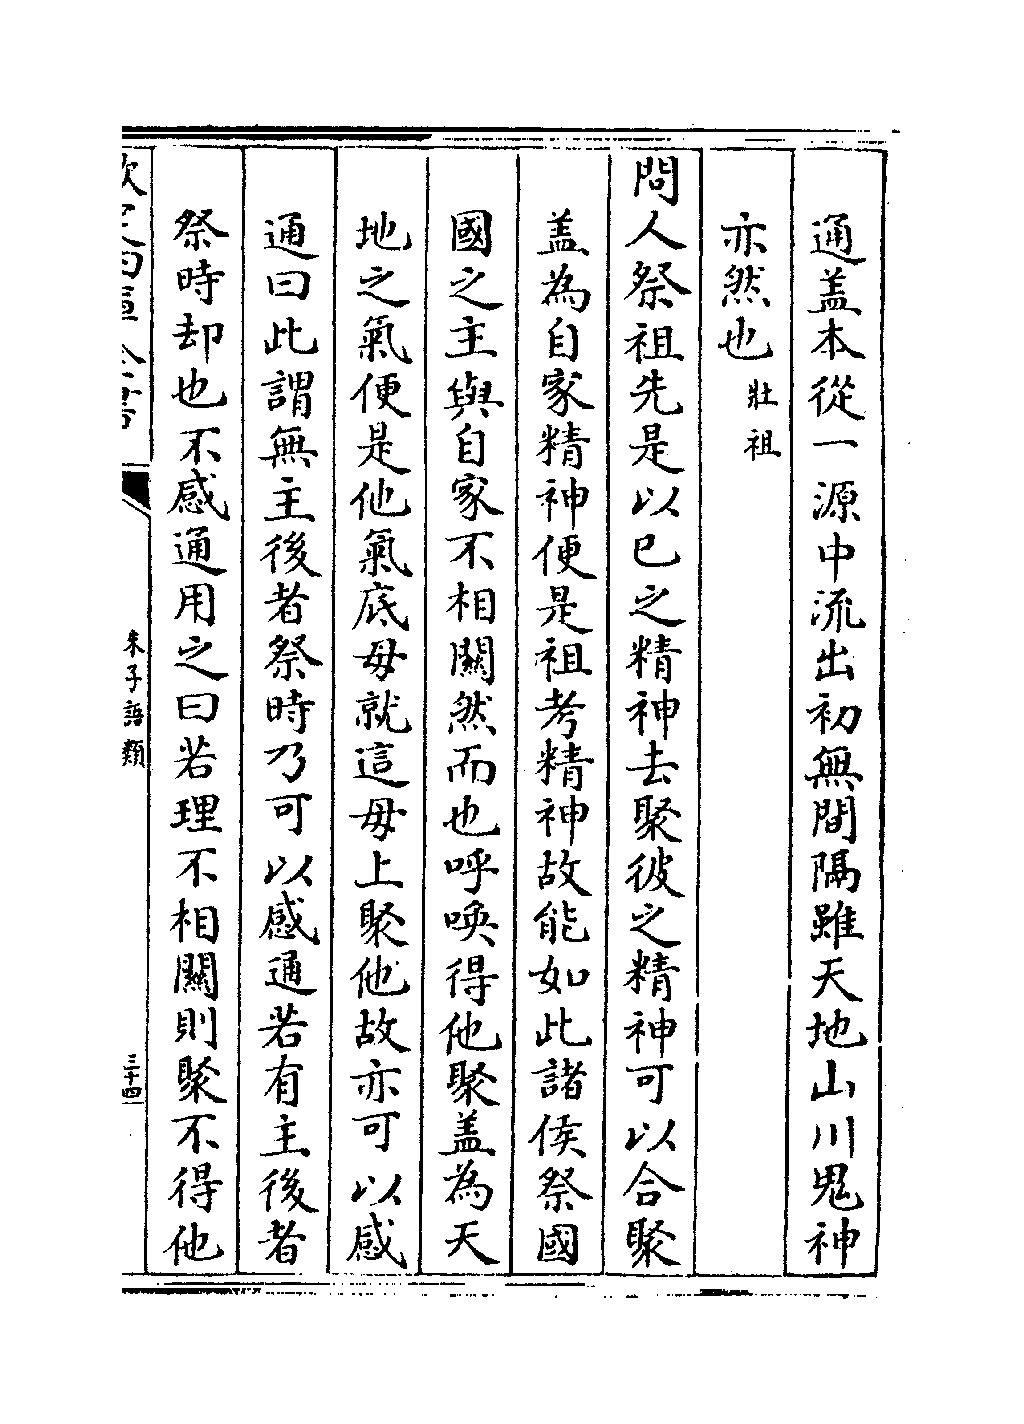 通盖本從一源中流出初無間隔雖天地山川鬼神
亦然也 壯祖
問人祭祖先是以已之精神去聚彼之精神可以合聚
盖為自家精神便是祖考精神故能如此諸侯祭國
國之主與自家不相關然而也呼喚得他聚盖為天
地之氣便是他氣底母就這母上聚他故亦可以感
通曰此謂無主後者祭時乃可以感通若有主後者
祭時却也不感通用之曰若理不相關則聚不得他
欽定四庫全書
朱子語類
三十四